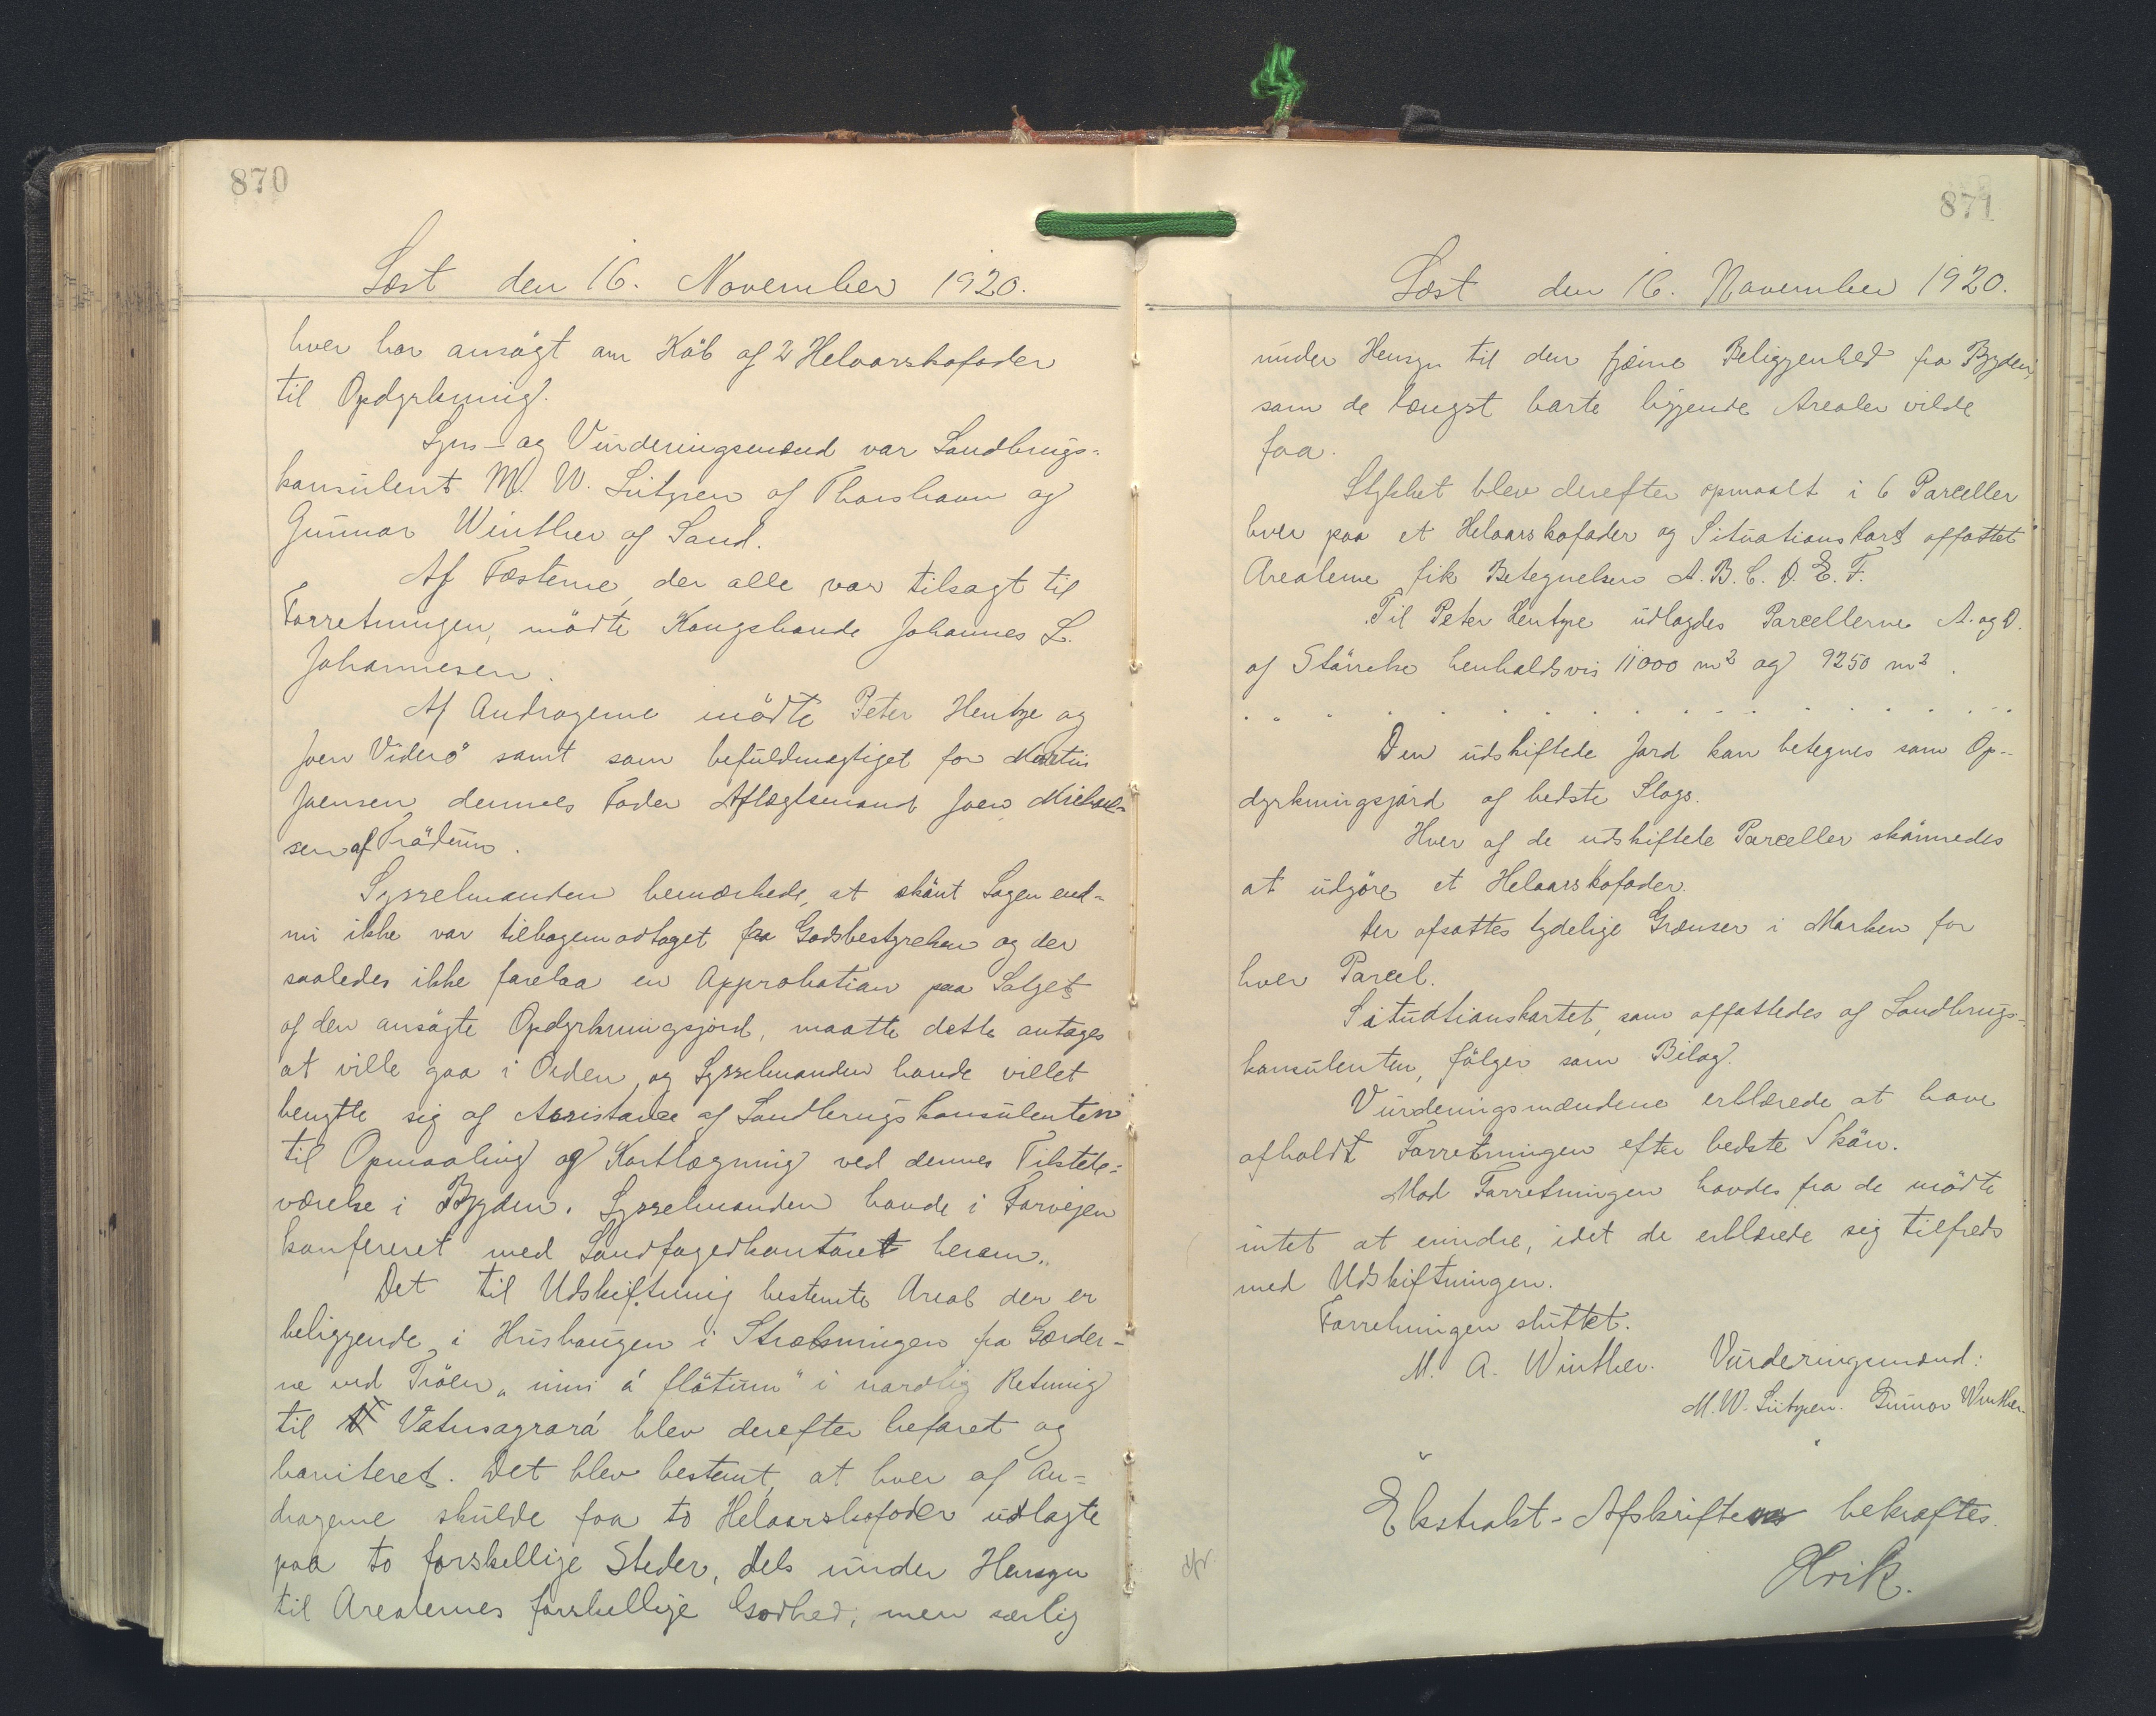 870
Læst den 16. November 1920.
hver har ansögt om Köb af 2 Helaarskofoder
til Opdyrkning.
Syns- og Vurderingsmænd var Landbrugs-
konsulent M. W. Lützen af Thorshavn og
Gunnar Winther af Sand.
Af Fæsterne, der alle var tilsagt til
Forretningen, mödte Kongsbonde Johannes L.
Johannesen.
Af Andragerne mödte Peter Hentze og
Joen Viderö samt som befuldmægtiget for Martin
Joensen dennes Fader Aftægtsmand Joen Michael-
sen af Trödum.
Sysselmanden bemærkede, at skönt Sagen end-
nu ikke var tilbagemodtaget fra Godsbestyrelsen og der
saaledes ikke forelaa en Approbation paa Salget
af den ansögte Opdyrkningsjord, maatte dette antages
at ville gaa i Orden, og Sysselmanden havde villet
benytte sig af Assistance af Landbrugskonsulenten
til Opmaaling og Kortlægning ved dennes Tilstede-
værelse i Bygden. Sysselmanden havde i Forvejen
konfereret med Landfogedkontoret herom.
Det til Udskiftning bestemte Areal der er
beliggende i Hushaugen i Strækningen fra Gærder-
ne ved Tröen "inni á flötum" i nordlig Retning
til Vatnsagrará blev derefter befaret og
boniteret. Det blev bestemt, at hver af An-
dragerne skulde faa to Helaarskofoder udlagte
paa to forskellige Steder, dels under Hensyn
til Arealernes forskellige Godhed, men særlig
871
Læst den 16. November 1920.
under Hensyn til den fjærne Beliggenhed fra Bygden,
som de længst borte liggende Arealer vilde
faa.
Stykket blev derefter opmaalt i 6 Parceller
hver paa et Helaarskofoder og Situationskort affattet
Arealerne fik Betegnelsen A. B. C. D. E. F.
Til Peter Hentze udlagdes Parcellerne A. og D.
af Störrelse henholdsvis 11000 m² og 9250 m².
. . . . . . . . . . . . . . . .
Den udskiftede Jord kan betegnes som Op-
dyrkningsjord af bedste Slags.
Hver af de udskiftede Parceller skönnedes
at udgöre et Helaarskofoder.
Der afsattes tydelige Grænser i Marken for
hver Parcel.
Situationskortet, som affattedes af Landbrugs-
konsulenten, fölger som Bilag.
Vurderingsmændene erklærede at have
afholdt Forretningen efter bedste Skön.
Mod Forretningen havdes fra de mödte
intet at erindre, idet de erklærede sig tilfreds
med Udskiftningen.
Forretningen sluttet.
M. A. Winther. Vurderingsmænd:
M. W. Lützen. Gunnar Winther.
Ekstrakt-Afskriften bekræftes.